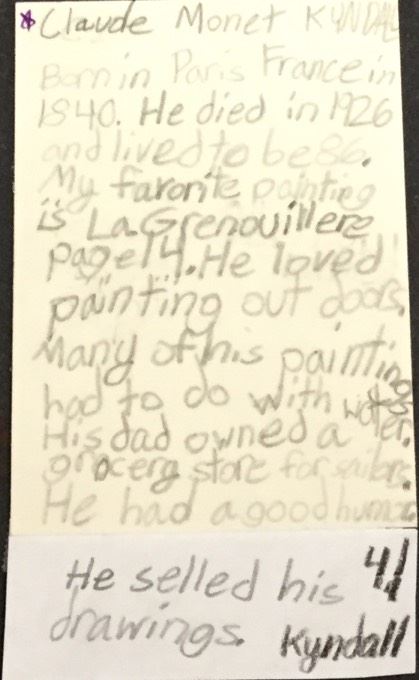 *Claude Monet KYNDALL
Born in Paris France in
1840. He died in 1926
and lived to be 86.
My favorite painting
is La Grenouillere
page 14. He loved
painting out doors.
Many of his paintings
had to do with water.
His dad owned a
grocerg store for sailers.
He had a good humor
He selled his 4!
drawings. Kyndall